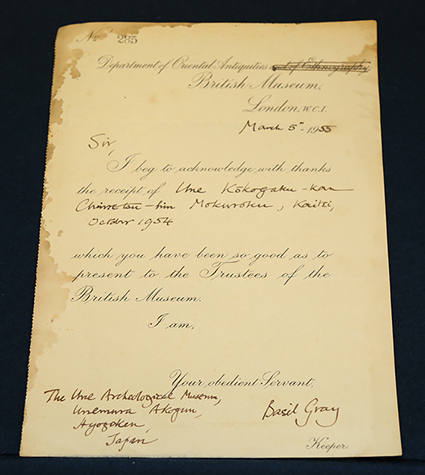 No. 235
Department of Oriental Antiquities and of Ethnography
British Museum,
London, W.C.1.
March 5th 1955
Sir,
I beg to acknowledge with thanks
the receipt of Une Kōkogaku-kan
Chinretsu-hin Mokuroku, Kaitei,
October 1954
which you have been so good as to
present to the Trustees of the
British Museum.
I am,
Your obedient Servant,
The Une Archeological Museum,
Unemura Akogun,
Ayogoken,
Japan
Basil Gray
Keeper